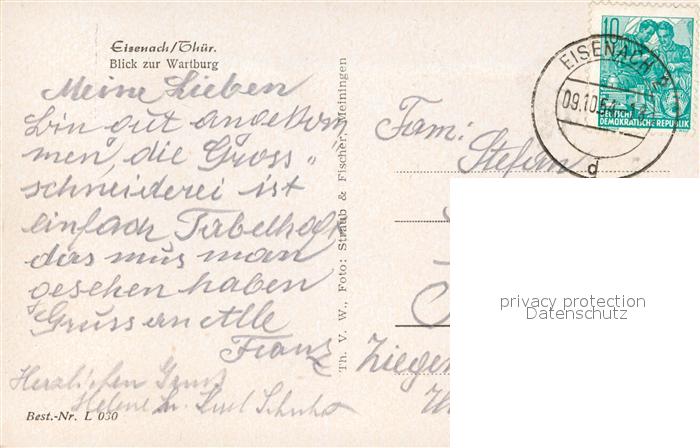 Eisenach/Thür.
Blick zur Wartburg
Meine Lieben
bin gut angekom
men, die Gross"
schneiderei ist
einfach Fabelhaft
das mus man
gesehen haben
Gruss an Alle
Franz
Herzlichen Gruss
Helene u.
Best.-Nr. L 030
Th. V. W., Foto: Straub & Fischer, Meiningen
Fam:
Stefan
Ziegen
10
DEUTSCHE
DEMOKRATISCHE REPUBLIK
EISENACH 2
09.10.54
d
privacy protection
Datenschutz